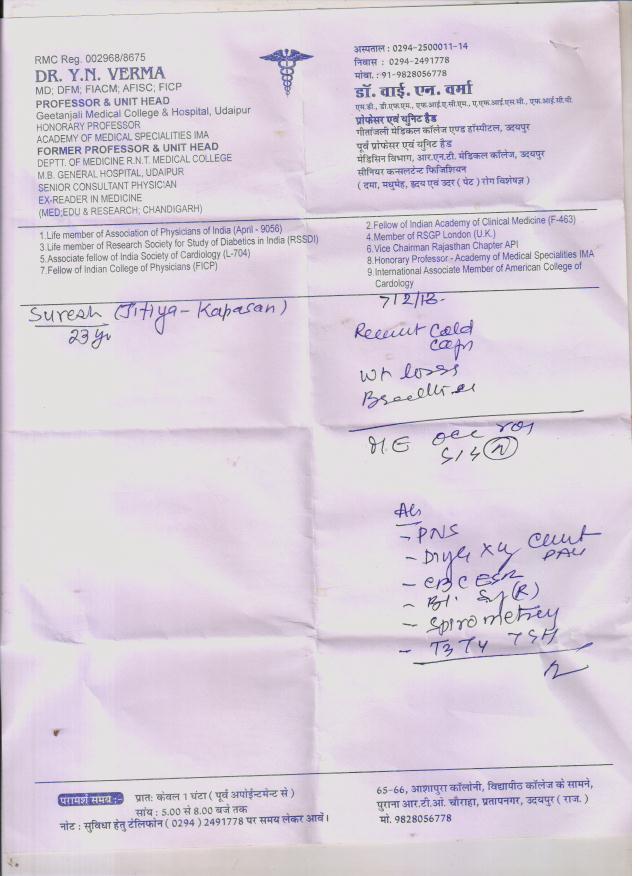 RMC Reg. 002968/8675
DR. Y.N. VERMA
MD; DFM; FIACM; AFISC; FICP
PROFESSOR & UNIT HEAD
Geetanjali Medical College & Hospital, Udaipur
HONORARY PROFESSOR
ACADEMY OF MEDICAL SPECIALITIES IMA
FORMER PROFESSOR & UNIT HEAD
DEPTT. OF MEDICINE R.N.T. MEDICAL COLLEGE
M.B. GENERAL HOSPITAL, UDAIPUR
SENIOR CONSULTANT PHYSICIAN
EX-READER IN MEDICINE
(MED;EDU & RESEARCH; CHANDIGARH)
अस्पताल : 0294-2500011-14
निवास : 0294-2491778
मोबा. : 91-9828056778
डॉ. वाई. एन. वर्मा
एम.डी., डी.एफ.एम., एफ.आई.ए.सी.एम., ए.एफ.आई.एस.सी., एफ.आई.सी.पी.
प्रोफेसर एवं यूनिट हैड
गीतांजली मेडिकल कॉलेज एण्ड हॉस्पीटल, उदयपुर
पूर्व प्रोफेसर एवं यूनिट हैड
मेडिसिन विभाग, आर.एन.टी. मेडिकल कॉलेज, उदयपुर
सीनियर कन्सलटेन्ट फिजिशियन
( दमा, मधुमेह, हृदय एवं उदर ( पेट ) रोग विशेषज्ञ )
1.Life member of Association of Physicians of India (April - 9056)
3.Life member of Research Society for Study of Diabetics in India (RSSDI)
5.Associate fellow of India Society of Cardiology (L-704)
7.Fellow of Indian College of Physicians (FICP)
2.Fellow of Indian Academy of Clinical Medicine (F-463)
4.Member of RSGP London (U.K.)
6.Vice Chairman Rajasthan Chapter API
8.Honorary Professor - Academy of Medical Specialities IMA
9.International Associate Member of American College of
Cardology
Suresh (Jitiya - Kapasan)
23 yr
7/2/13
Recurrent Cold
Wt loss
O/E
S1 S2 N
- PNS
- X Ray Chest PA
- CBC ESR
- Bl. (R)
- Spirometrey
- T3 T4 TSH
परामर्श समय :-
प्रातः केवल 1 घंटा ( पूर्व अपोईन्टमेन्ट से )
सांय : 5.00 से 8.00 बजे तक
नोट : सुविधा हेतु टेलिफोन ( 0294 ) 2491778 पर समय लेकर आवें।
65-66, आशापुरा कॉलोनी, विद्यापीठ कॉलेज के सामने,
पुराना आर.टी.ओ. चौराहा, प्रतापनगर, उदयपुर ( राज. )
मो. 9828056778